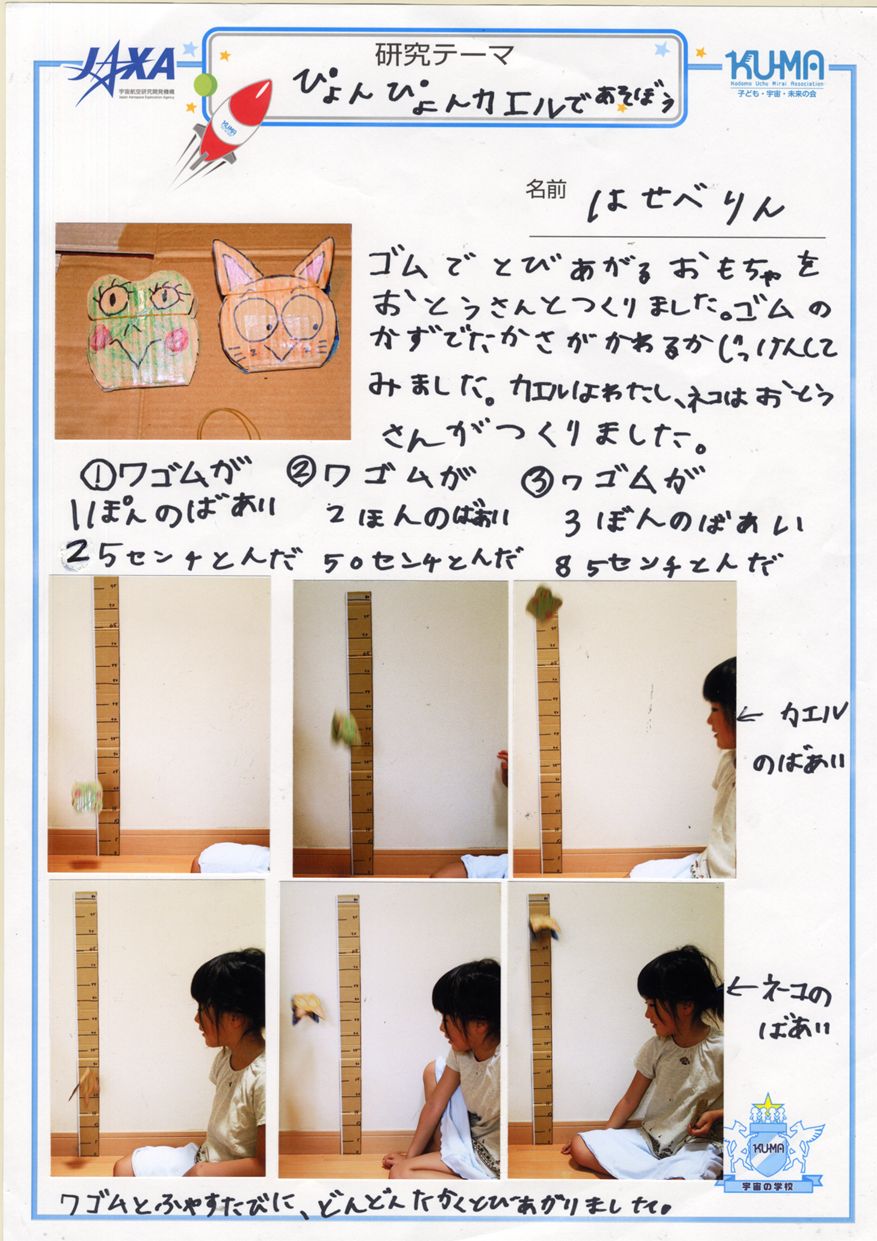 JAXA
宇宙航空研究開発機構
Japan Aerospace Exploration Agency
研究テーマ
ぴょんぴょんカエルであそぼう
KU-MA
Kodomo Uchu Mirai Association
子ども・宇宙・未来の会
KU-MA
名前 はせべりん
ゴムでとびあがるおもちゃを
おとうさんとつくりました。ゴムの
かずでたかさがかわるかじっけんして
みました。カエルはわたし、ネコはおとう
さんがつくりました。
①ワゴムが
1ぽんのばあい
25センチとんだ
②ワゴムが
2ほんのばあい
50センチとんだ
③ワゴムが
3ぼんのばあい
85センチとんだ
←カエル
のばあい
←ネコの
ばあい
KU-MA
宇宙の学校
ワゴムとふやすたびに、どんどんたかくとびあがりました。